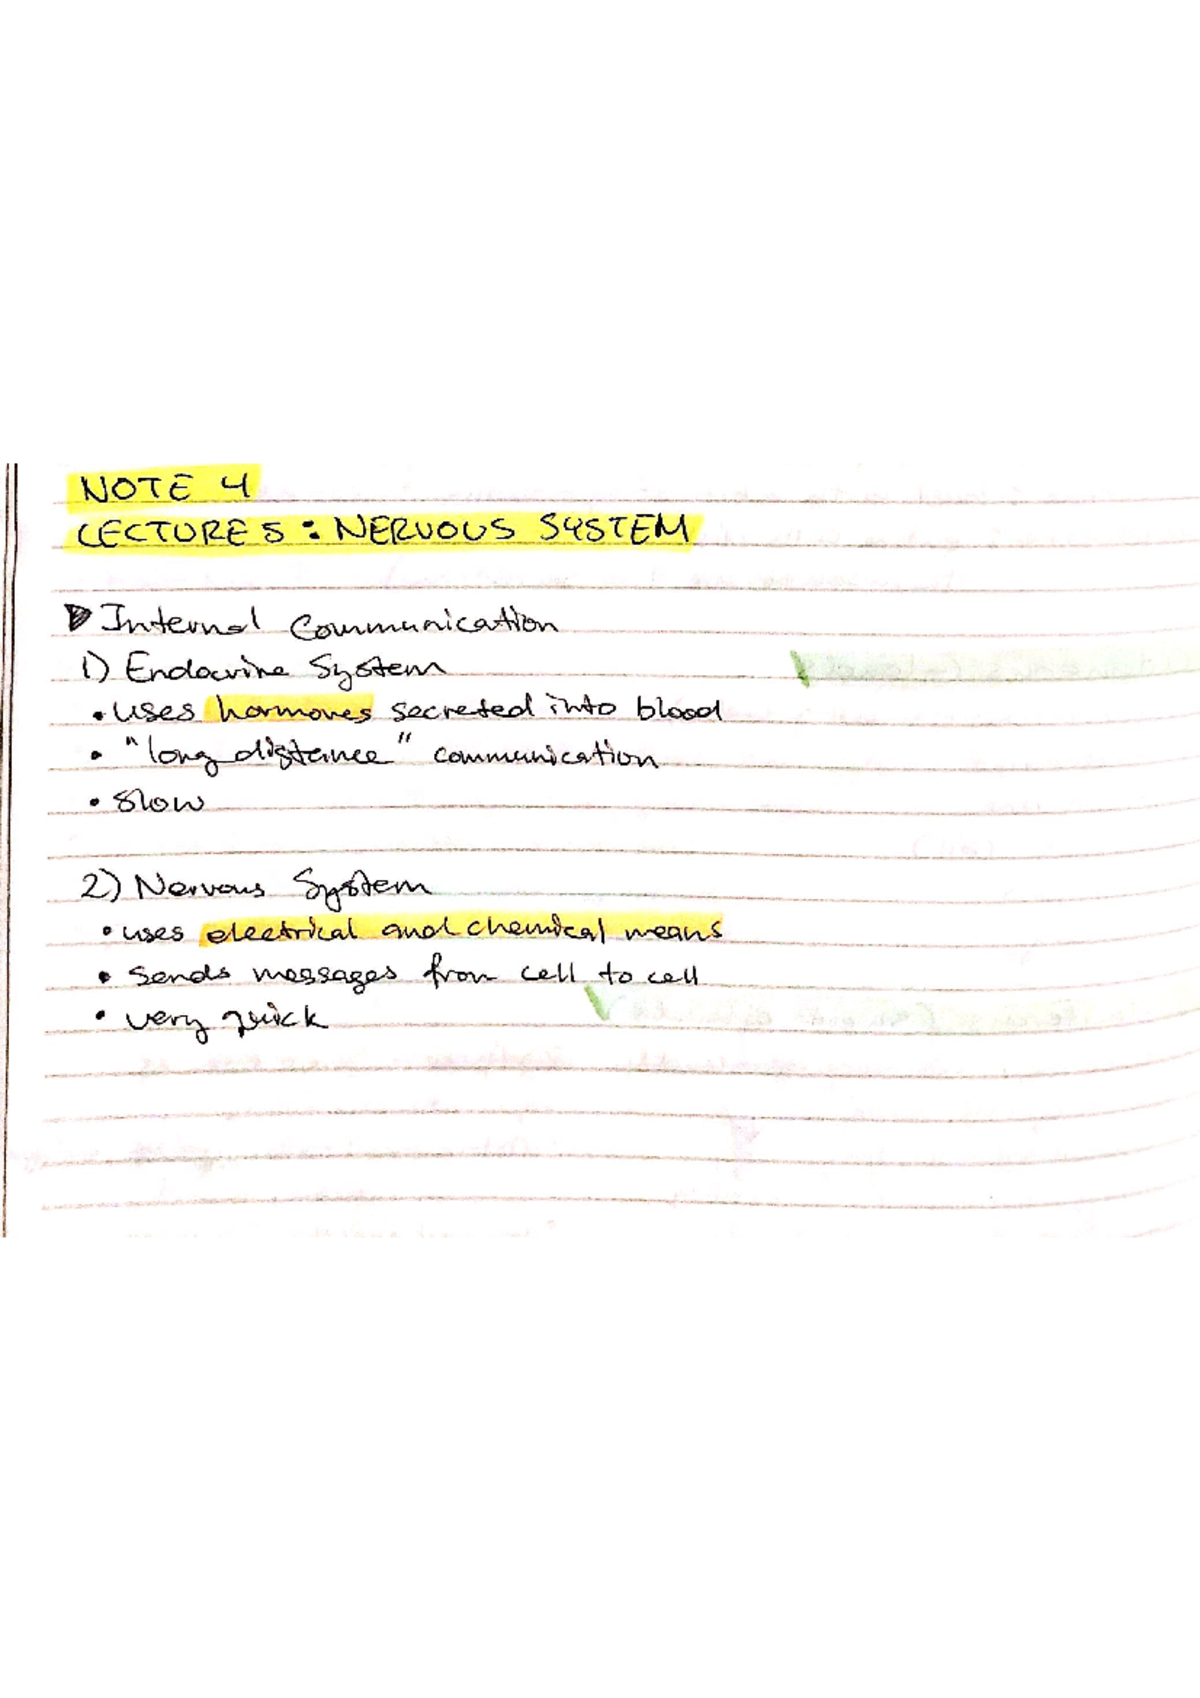 NOTE 4
LECTURE 5 : NERVOUS SYSTEM
Internal Communication
1) Endocrine System
• uses hormones secreted into blood
• "long distance" communication
• slow
2) Nervous System
• uses electrical and chemical means
• sends messages from cell to cell
• very quick